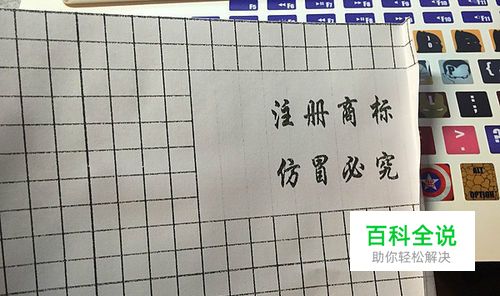 F5
F7
F8
F9
F10
F11
F10
F11
注册商标
仿冒必究
ALT
OPTION
百科全说
助你轻松解决